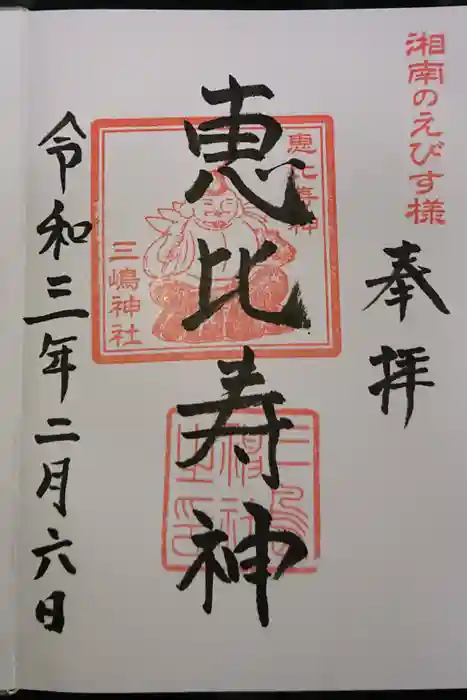 湘南のえびす様
奉拝
恵比寿神
恵比寿神
三嶋神社
令和三年二月六日